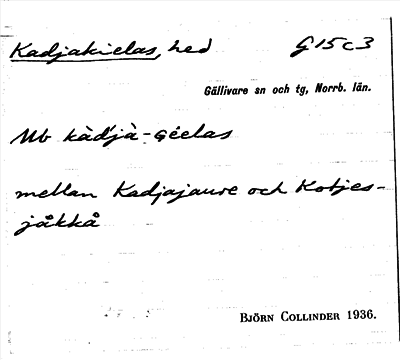 Kadjakielas, hed G 15 c 3
Gällivare sn och tg, Norrb. län.
Ub kàd́jà-gėelas
mellan Kadjajaure och Kotjes-
jåkkå
BJÖRN COLLINDER 1936.